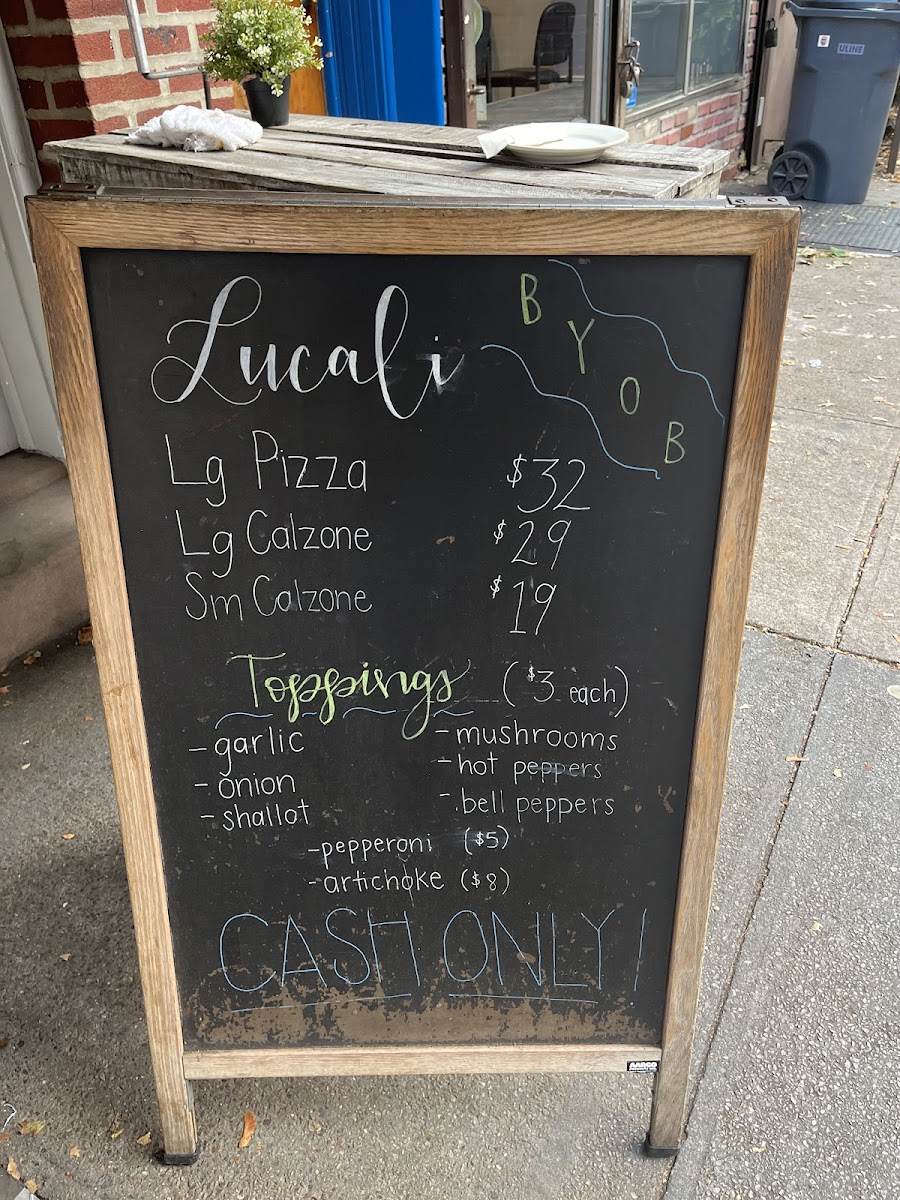 ULINE
Lucali
B Y O B
Lg Pizza $32
Lg Calzone $29
Sm Calzone $19
Toppings ($3 each)
- garlic
- onion
- shallot
- mushrooms
- hot peppers
- bell peppers
- pepperoni ($5)
- artichoke ($8)
CASH ONLY!
AARCO